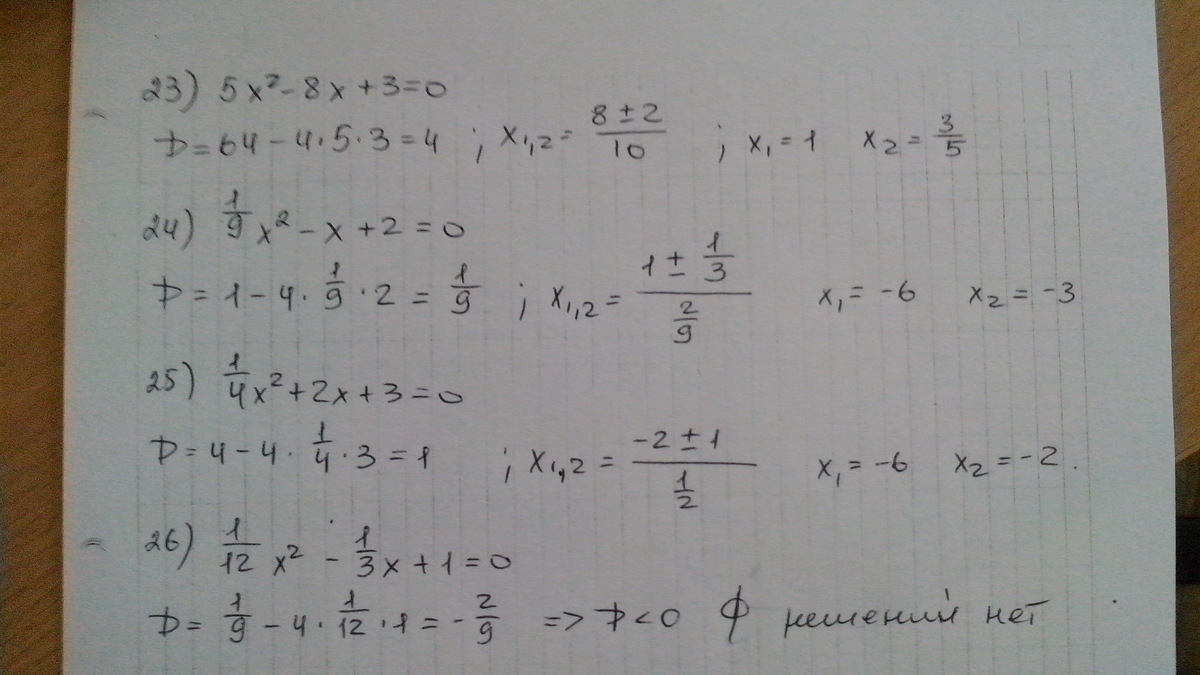 23) 5x² - 8x + 3 = 0
D = 64 - 4·5·3 = 4 ; x₁,₂ = (8 ± 2)/10 ; x₁ = 1 x₂ = 3/5
24) 1/9 x² - x + 2 = 0
D = 1 - 4 · 1/9 · 2 = 1/9 ; x₁,₂ = (1 ± 1/3)/(2/9) x₁ = -6 x₂ = -3
25) 1/4 x² + 2x + 3 = 0
D = 4 - 4 · 1/4 · 3 = 1 ; x₁,₂ = (-2 ± 1)/(1/2) x₁ = -6 x₂ = -2.
26) 1/12 x² - 1/3 x + 1 = 0
D = 1/9 - 4 · 1/12 · 1 = -2/9 => D < 0 ф решений нет